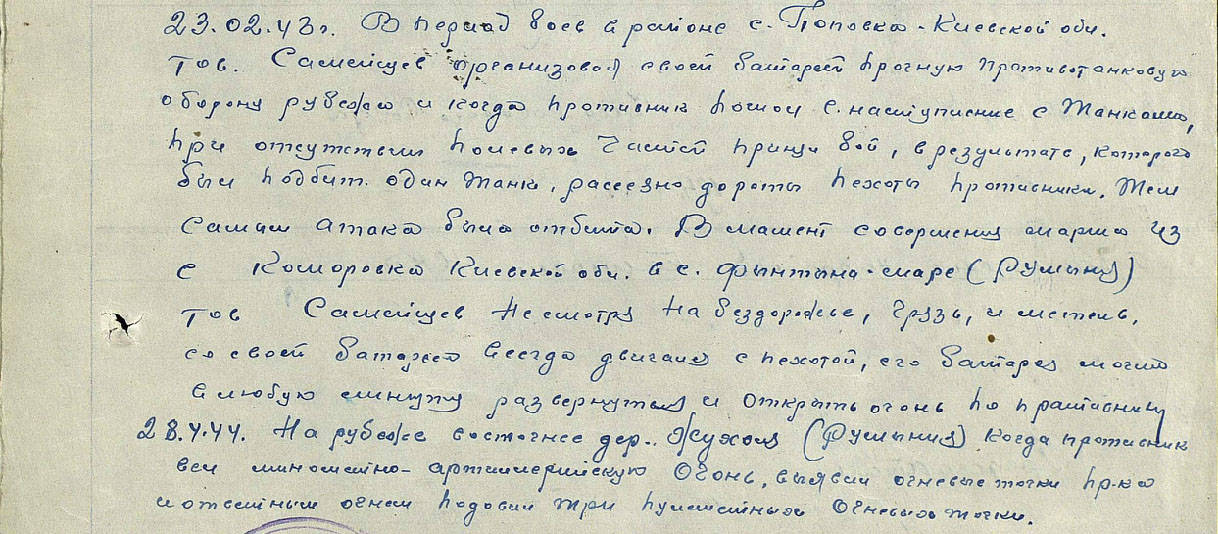 23.02.43г. В период боев в районе с. Поповка - Киевской обл.
тов. Самейцев организовал своей батареей прочную противотанковую
оборону рубежа и когда противник пошол в наступление с танками,
при отсутствии полевых частей принял бой, в результате, которого
был подбит один танк, рассеяно до роты пехоты противника. Тем
самым атака была отбита. В мамент совершения марша из
с Коморовка Киевской обл. в с. Фынтына-маре (Румыния)
тов Самейцев несмотря на бездорожье, грязь, и метель,
со своей батареей всегда двигался с пехотой, его батарея могла
в любую минуту развернуться и открыть огонь по противнику
28.4.44. На рубеже восточнее дер.. (Румыния) когда противник
вел минометно-артиллерийскую огонь, выявил огневые точки пр-ка
и ответным огнем подовил три пулеметных огневых точки.